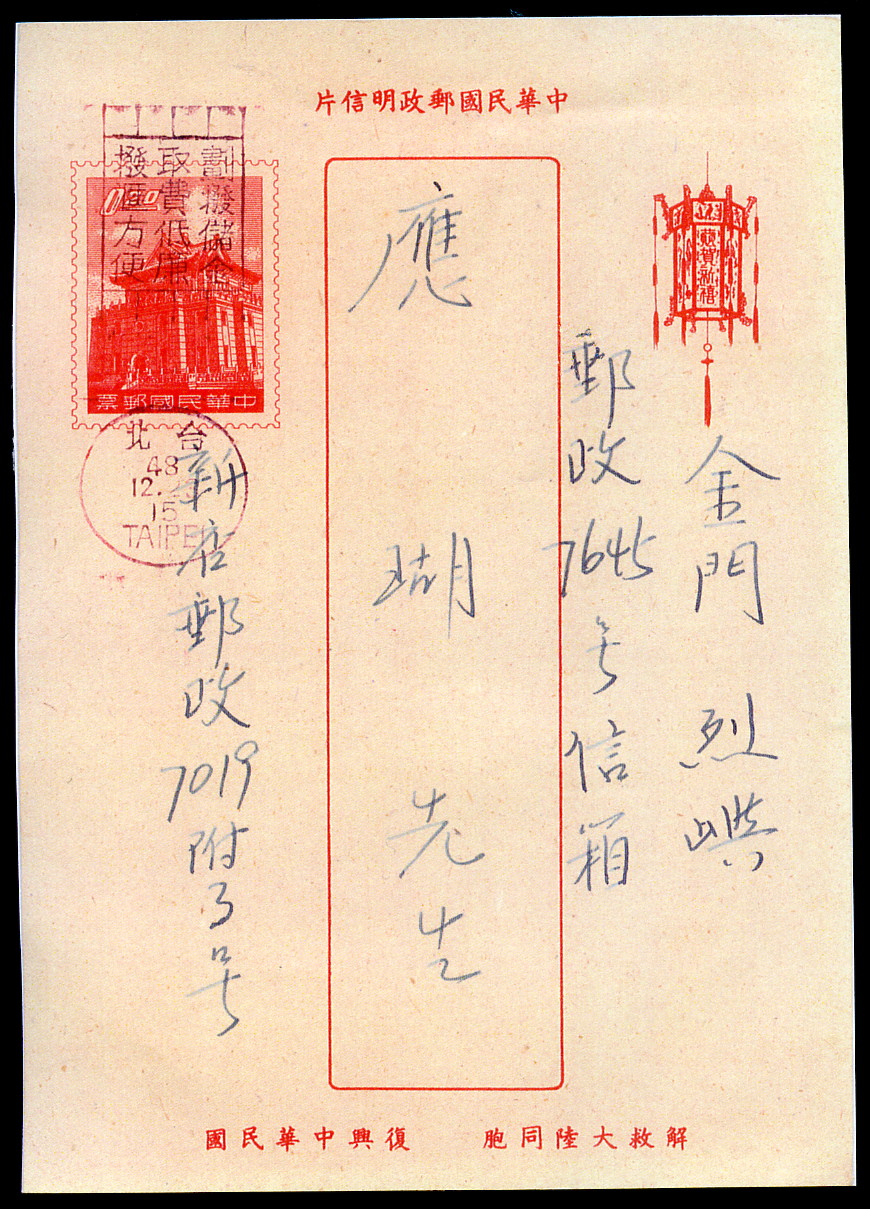 中華民國郵政明信片
恭賀新禧
金門 烈嶼
郵政7645号信箱
應 瑚 先生
新店郵政7019附3号
劃撥儲金
取費低廉
撥匯方便
中華民國郵票
台北
48
12.
15
TAIPEI
解救大陸同胞 復興中華民國